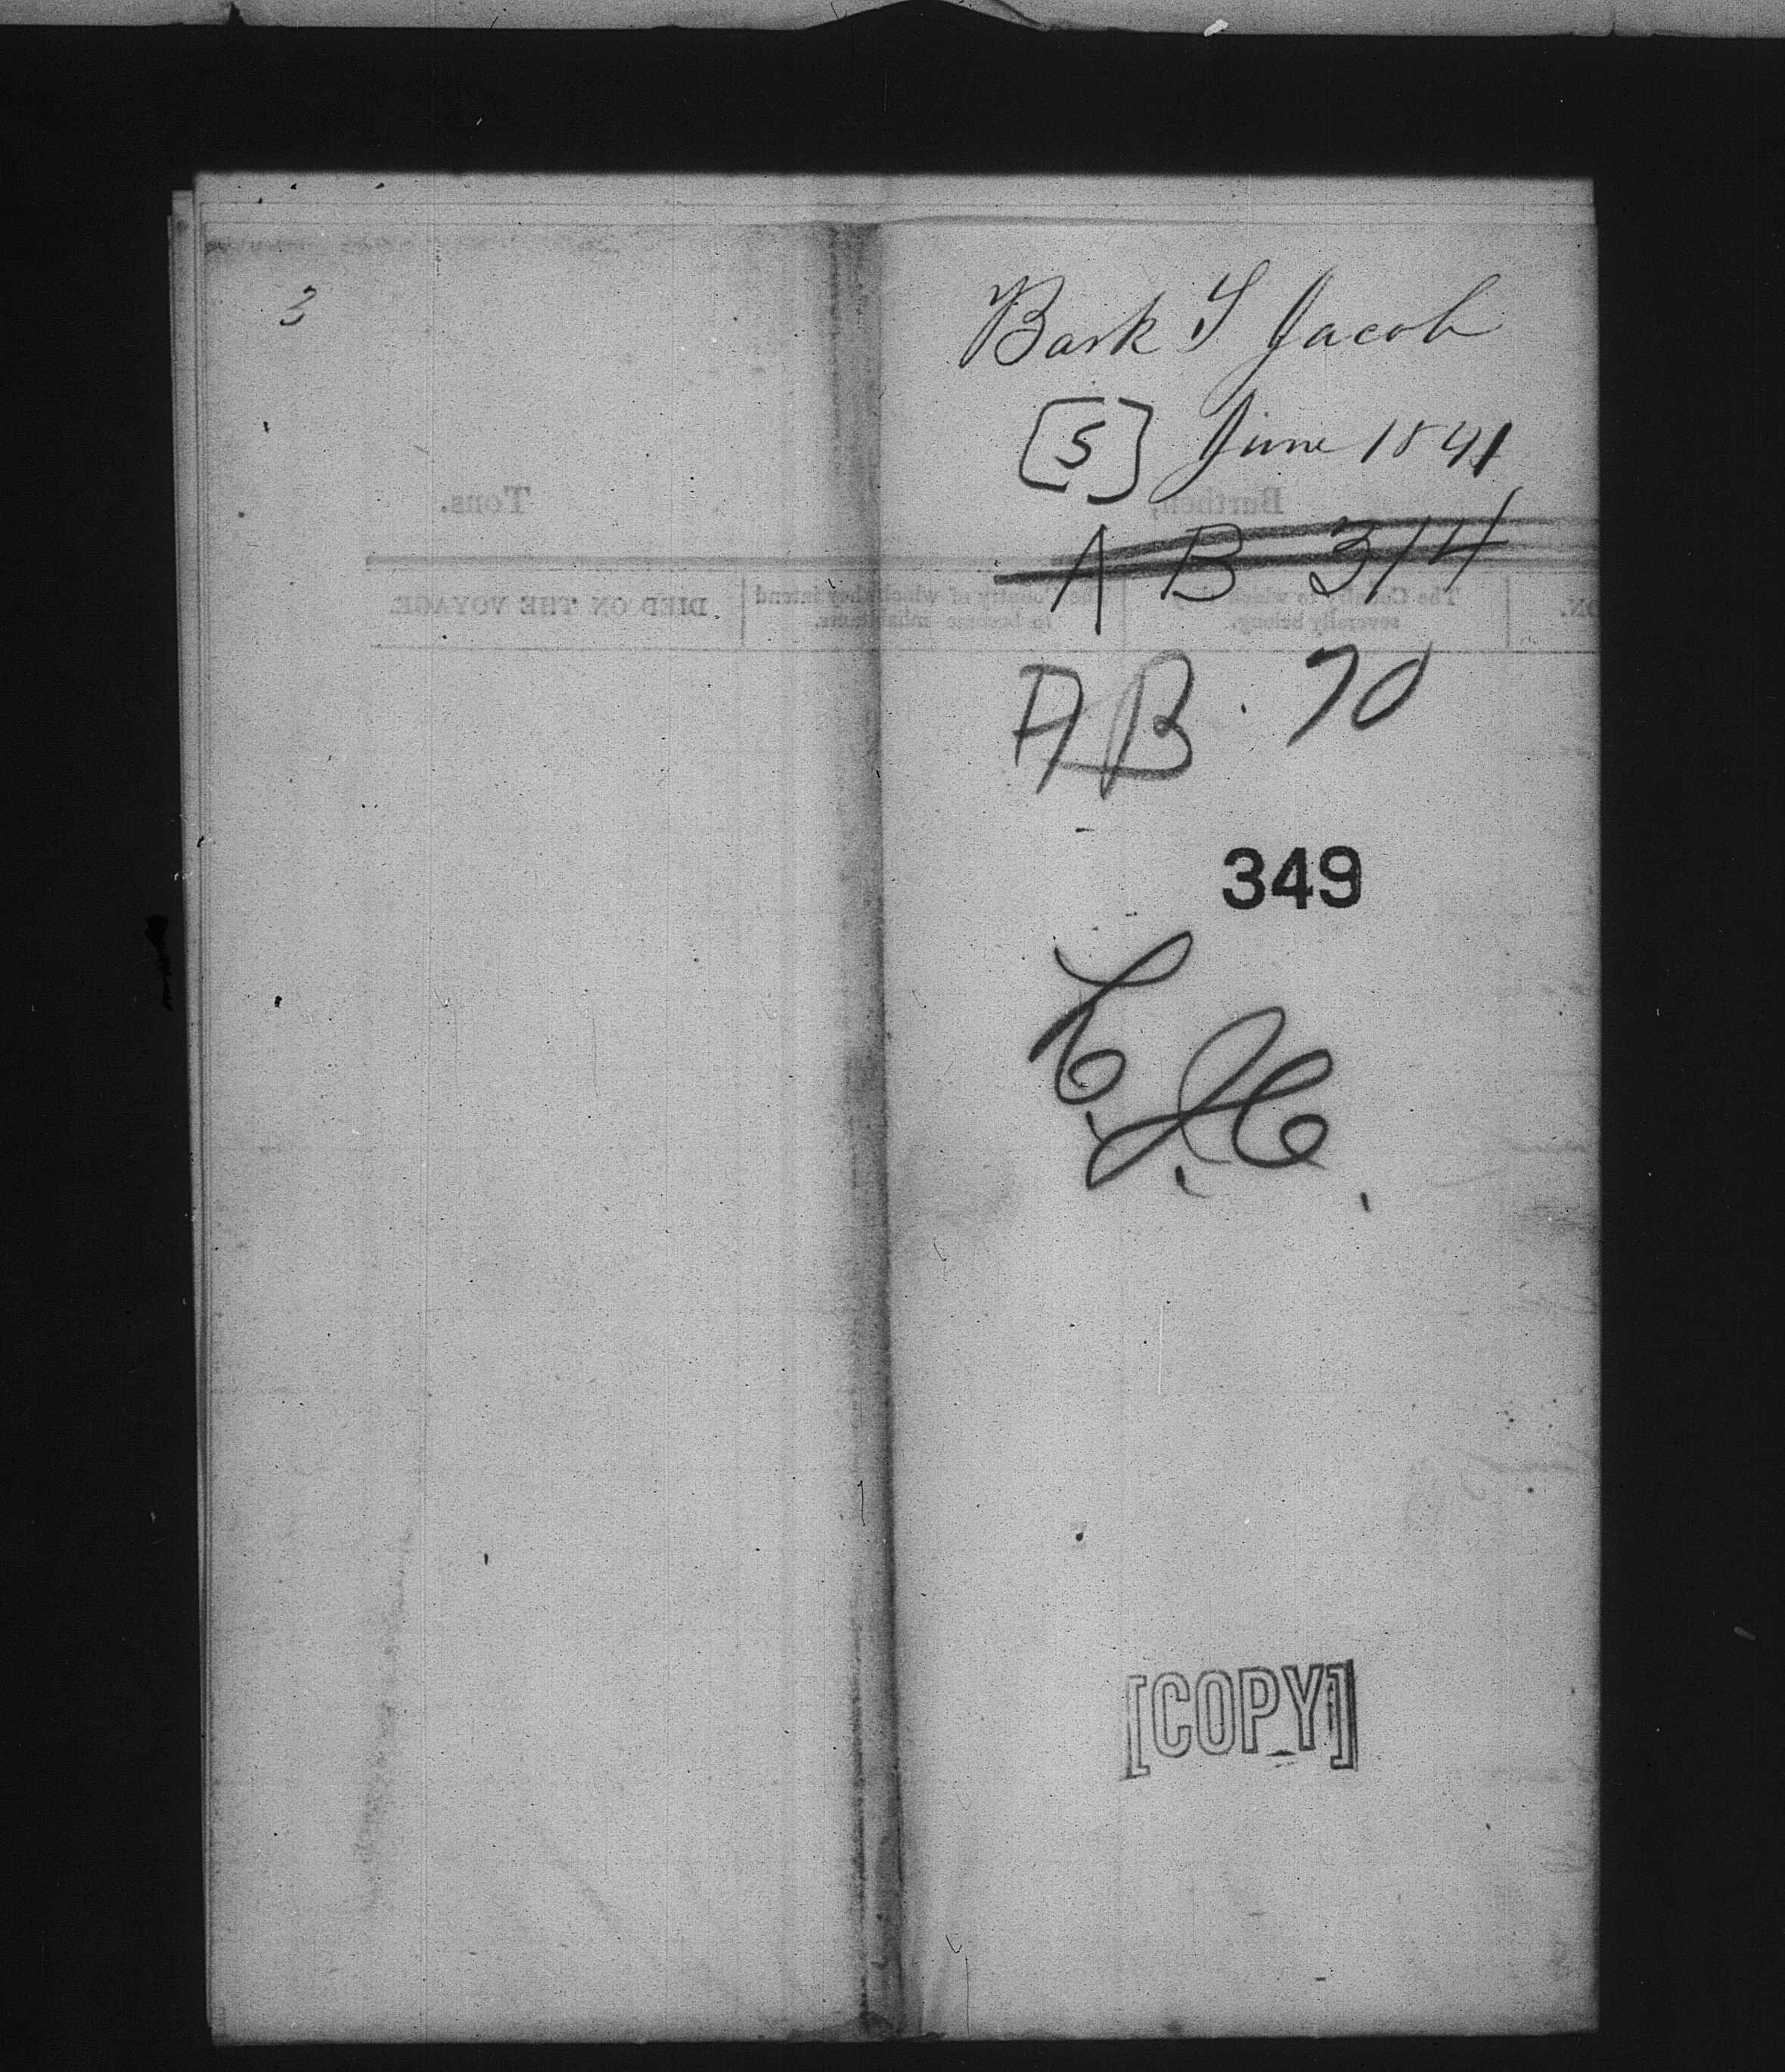 3
Bark S Jacob
[5] June 1841
Tons. Burthen,
A B 314
DIED ON THE VOYAGE. The Country of which they intend to become inhabitants. The Country to which they severally belong. ON.
AB. 70
349
[COPY]